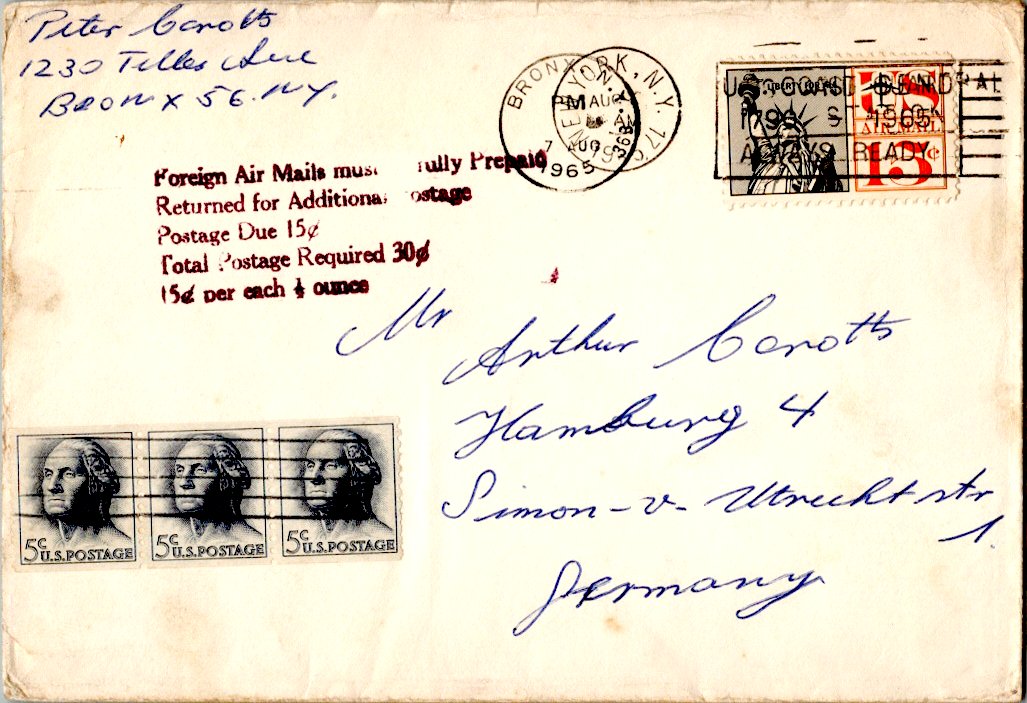 Peter Carotts
1230 Telles Ave
Bronx 56. NY.
BRONX
NEW YORK, N.Y.
AUG
7 AUG
1965
U.S. COAST GUARD
1790 1965
ALWAYS READY
LIBERTY
US
AIR MAIL
15¢
Foreign Air Mails must fully Prepaid
Returned for Additional Postage
Postage Due 15¢
Total Postage Required 30¢
15¢ per each ½ ounce
Mr
Arthur Carotts
Hamburg 4
Simon-v-Utrecht str
1.
Germany
5¢ U.S.POSTAGE
5¢ U.S.POSTAGE
5¢ U.S.POSTAGE